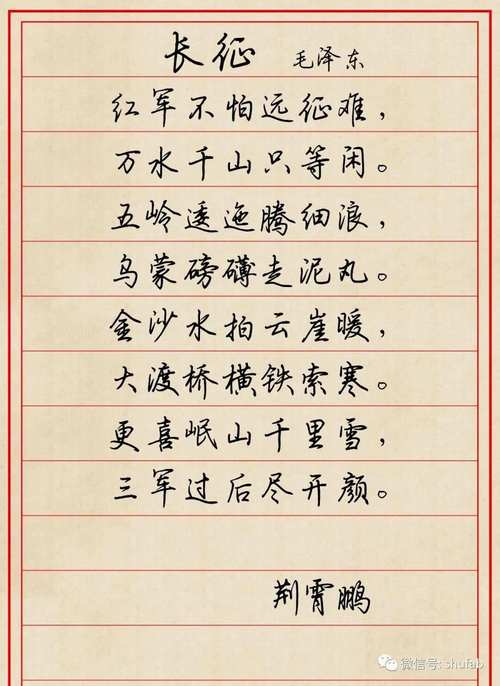 长征 毛泽东
红军不怕远征难，
万水千山只等闲。
五岭逶迤腾细浪，
乌蒙磅礴走泥丸。
金沙水拍云崖暖，
大渡桥横铁索寒。
更喜岷山千里雪，
三军过后尽开颜。
荆霄鹏
微信号: shufab